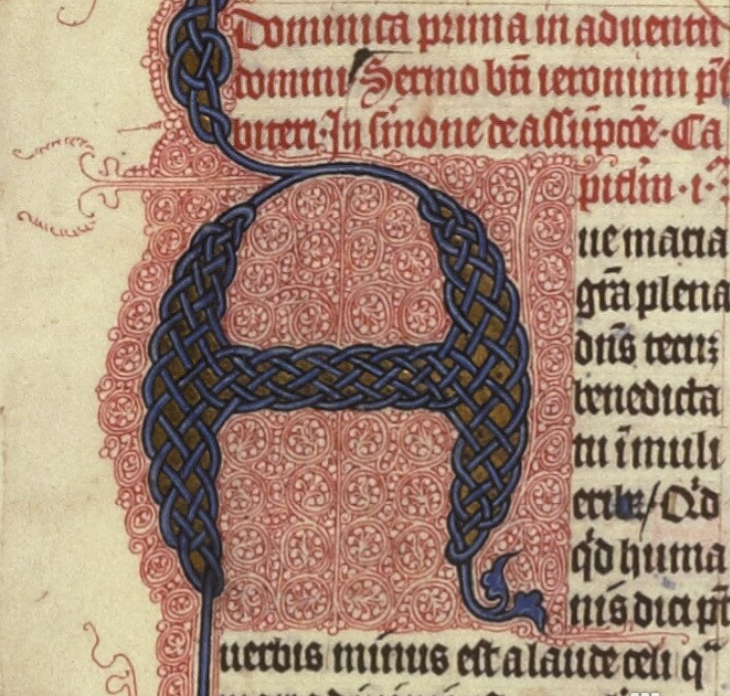 Dominica prima in aduentu
domini Sermo bti ieronimi p̄s
biteri. In s̄mone de assūpcōe. Ca
pitlm. i.
A
ue maria
grā plena
dn̄s tecū
benedicta
tu ī muli
erib; / Qd
qd huma
nis dici pt
uerbis minus est a laude celi q